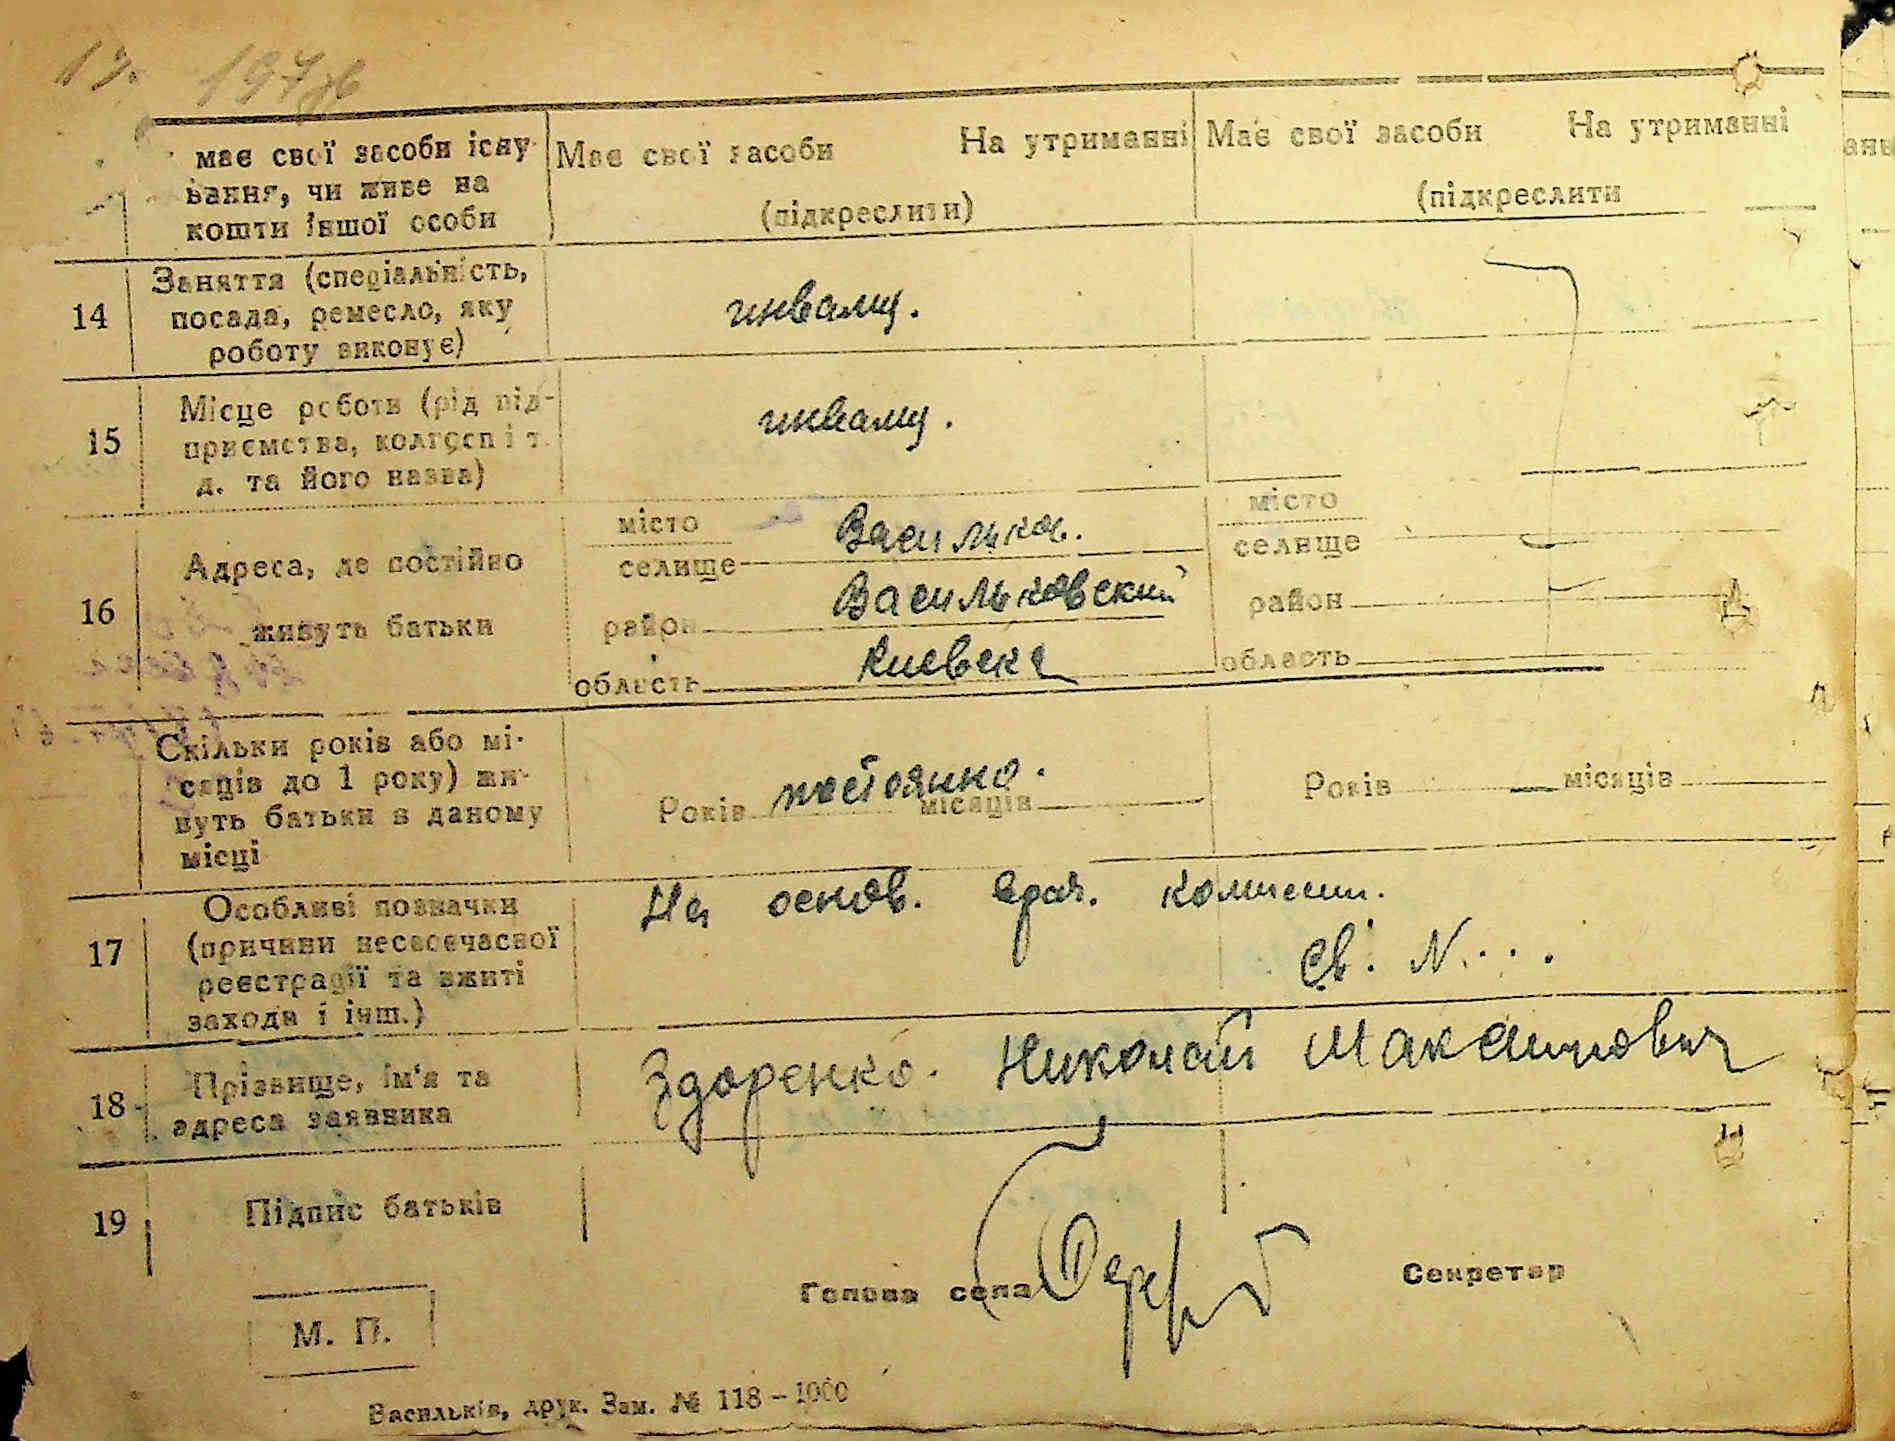 197
має свої засоби існу-
вання, чи живе на
кошти іншої особи
Має свої засоби На утриманні
(підкреслити)
Має свої засоби На утриманні
(підкреслити
14
Заняття (спеціальність,
посада, ремесло, яку
роботу виконує)
инвалид.
15
Місце роботи (рід під-
приємства, колгосп і т.
д. та його назва)
инвалид.
16
Адреса, де постійно
живуть батьки
місто
селище
Васильков.
район
Васильковский
область
Киевска
місто
селище
район
область
Скільки років або мі-
сяців до 1 року) жи-
вуть батьки в даному
місці
Років постоянно. місяців
Років місяців
17
Особливі позначки
(причини несвоєчасної
реєстрації та вжиті
заходи і інш.)
На основ. врач. комиссии.
Св. N...
18
Прізвище, ім'я та
адреса заявника
Здоренко. Николай Максимович
19
Підпис батьків
Голова села
Секретар
М. П.
Васильків, друк. Зам. № 118 – 1000